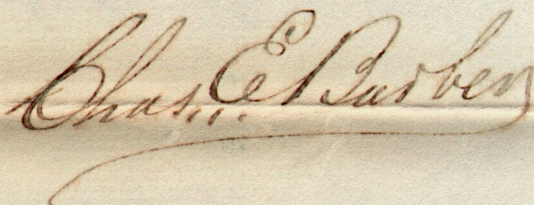 Chas. E Barber